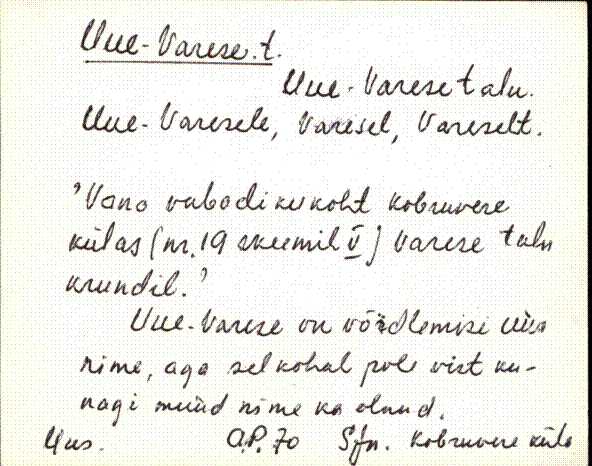 Uue-Varese t.
Uue-Varese talu.
Uue-Varesele, Varesel, Vareselt.
'Vana vabadikukoht Kobruvere
külas (nr. 19 skeemil V) Varese talu
krundil.'
Uue-Varese on võrdlemisi uus
nime, aga sel kohal pole vist ku-
nagi muud nime ka olnud.
Uus. A.P. 70 Sfn. Kobruvere küla